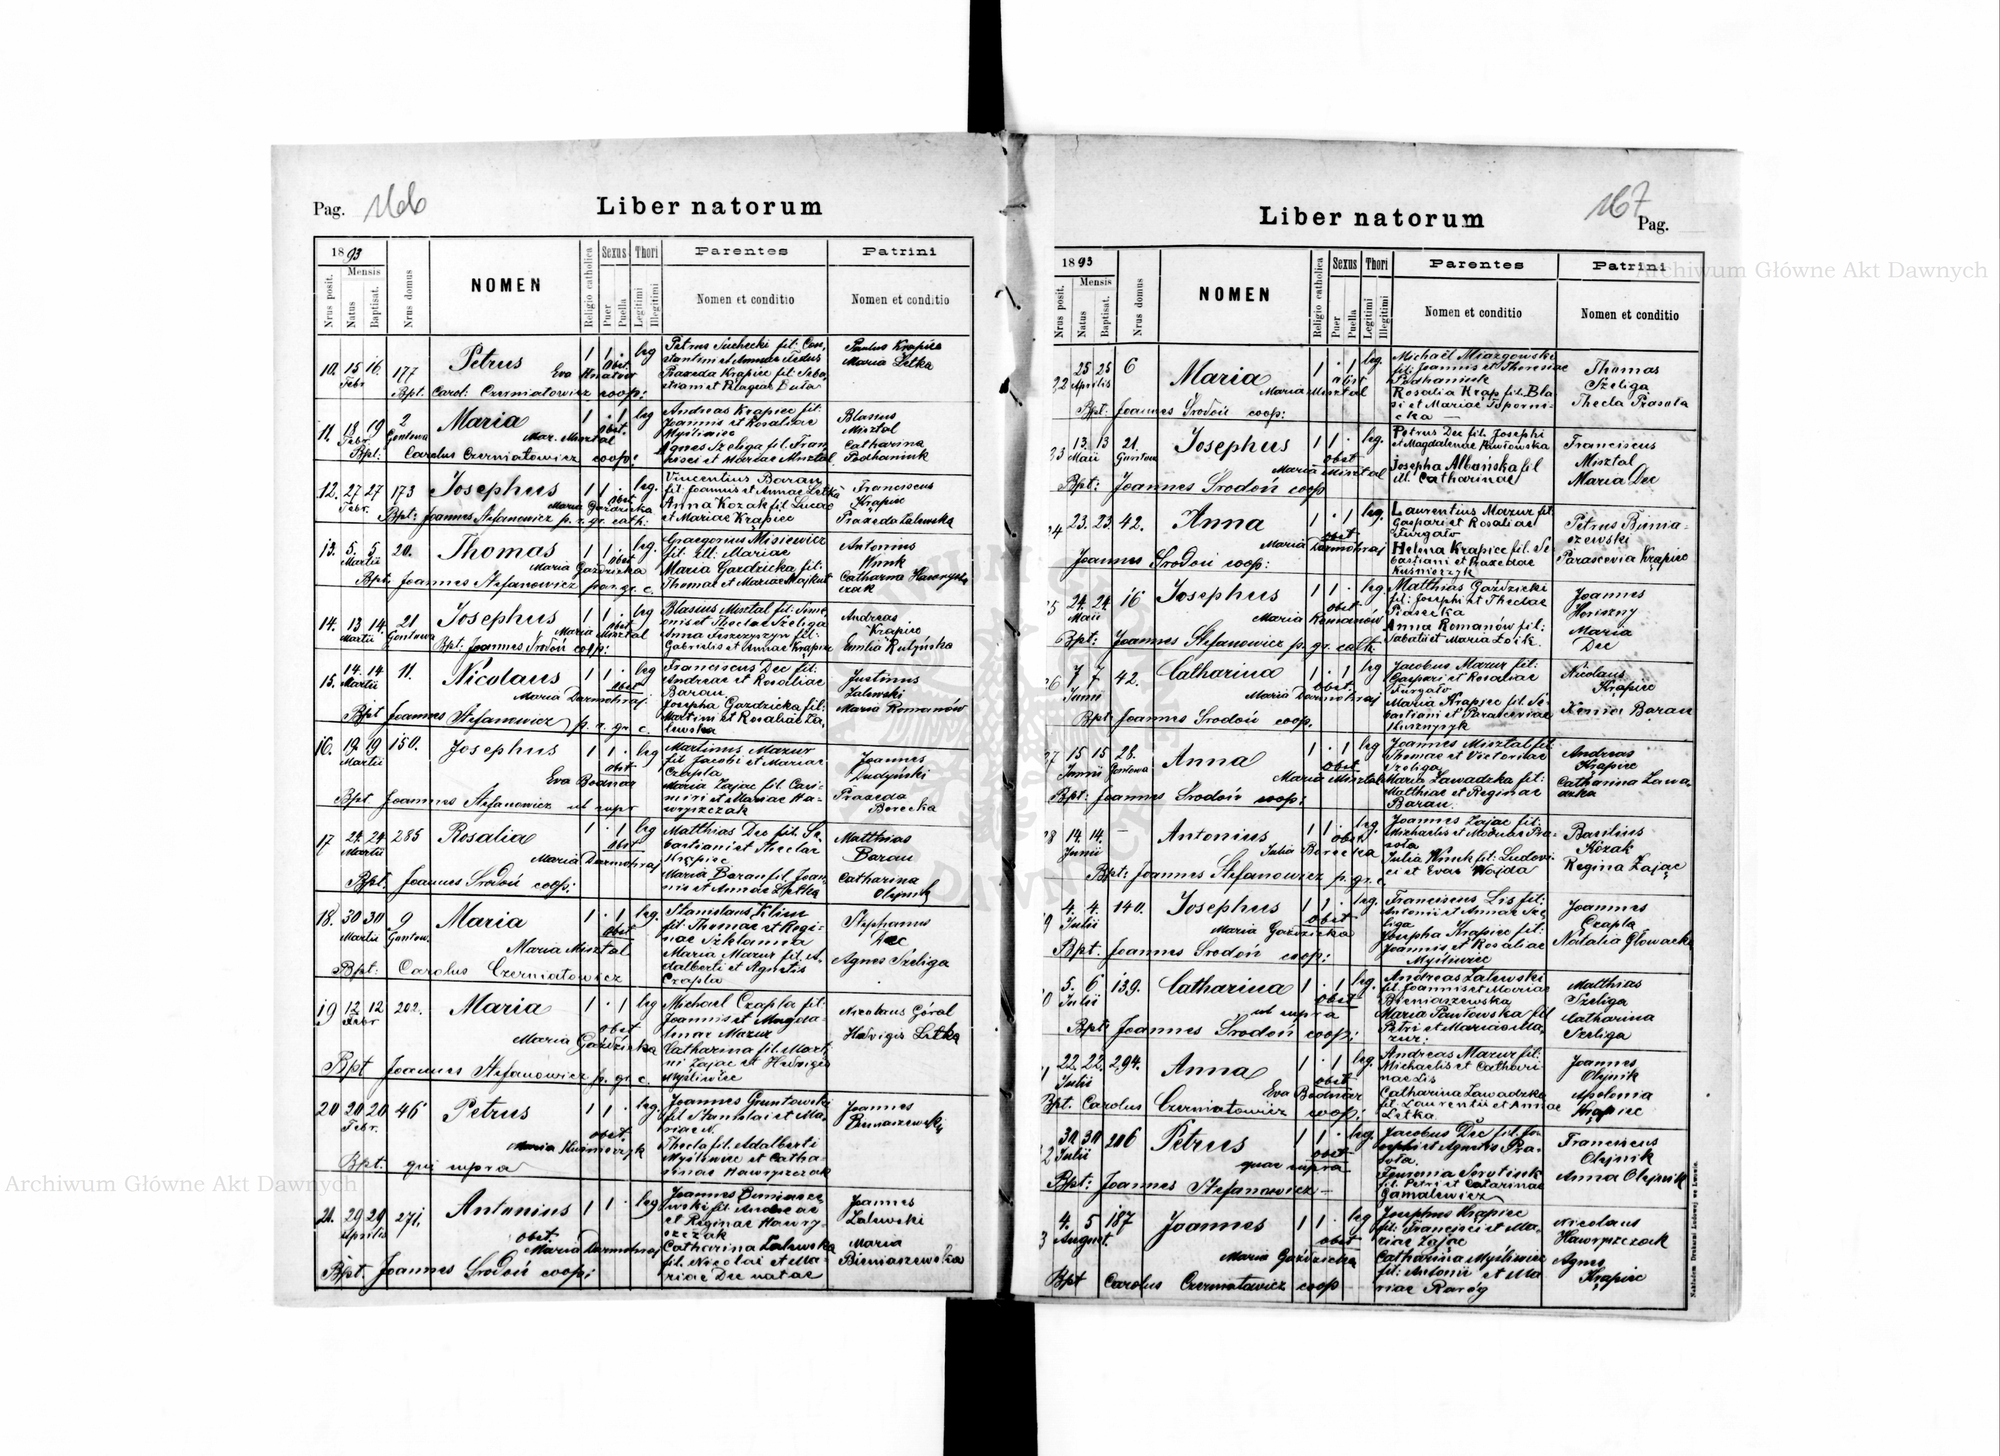 Archiwum Główne Akt Dawnych
Pag. 166
Liber natorum
1893
Nrus posit.
Mensis
Natus
Baptisat.
Nrus domus
NOMEN
Religio catholica
Sexus
Puer
Puella
Thori
Legitimi
Illegitimi
Parentes
Nomen et conditio
Patrini
Nomen et conditio
10. 15 16 177 Petrus 1 1 . leg
Febr
Obst.
Bpt. Carol. Czerniatowicz coop:
Paulus Krąpiec
Maria Letka
11. 18 19 2 Maria 1 . 1 leg
Febr. Gontowa
obst.
Mar. Misztal
Bpt: Carolus Czerniatowicz coop:
Andreas Krąpiec fil:
Joannis et Rosaliae
Myśliwiec
Agnes Szeliga fil: Fran
Blasius
Misztal
Catharina
Podhaniuk
12. 27 27 173 Josephus 1 1 . leg.
Febr.
obst
Maria Gaździcka
Bpt: Joannes Stefanowicz p. r. gr. cath:
Vincentius Baran
fil: Joannis et Annae Letka
Anna Kozak fil Lucae
et Mariae Krąpiec
Franciscus
Krąpiec
Praxeda Zalewska
13. 5. 5 20. Thomas 1 1 . leg.
Martii
obst
Maria Gaździcka
Bpt: Joannes Stefanowicz par. gr. c.
Graegorius Misiewicz
fil. Ill. Mariae
Maria Gazdzicka fil:
Thomae et Mariae Majkut
Antonius
Wnuk
14. 13 14 21 Josephus 1 1 . leg
Martii Gontowa
obst
Maria Misztal
Bpt: Joannes Srodoń coop:
Blasius Misztal fil: Sime
onis et Theclae Szeliga
Gabrielis et Annae Krąpiec
Andreas
Krąpiec
15. 14. 14 11. Nicolaus 1 1 . leg
Martii
obst
Maria Darmohraj
Bpt Joannes Stefanowicz p. r. gr. c.
Franciscus Dec fil:
Andreae et Rosaliae
Baran
Josepha Gazdzicka fil:
Martini et Rosaliae Za,
lewska
Justinus
Zalewski
Maria Romanów
16. 19. 19 150. Josephus 1 1 . leg
Martii
obst
Eva Bodnar
Bpt Joannes Stefanowicz ut supr
Martinus Mazur
fil Jacobi et Mariae
Czapla
Maria Zając fil. Casi-
miri et Mariae Ha-
wryszczak
Joannes
Dudyński
Praxeda
Borecka
17 24. 24 285 Rosalia 1 . 1 leg
Martii
obst
Maria Darmohraj
Bpt. Joannes Srodoń coop:
Matthias Dec fil. Se-
bastiani et Theclae
Krąpiec
Maria Baran fil. Joan-
nis et Annae Letka
Matthias
Baran
Catharina
Olejnik
18. 30 30 9 Maria 1 . 1 leg.
Martii Gontow.
obst
Maria Misztal
Bpt: Carolus Czerniatowicz
Stanislaus Klim
fil: Thomae et Regi-
nae Szklanna
Maria Mazur fil. A-
dalberti et Agnetis
Czapla
Stephanus
Dec
Agnes Szeliga
19 12 12 202. Maria 1 . 1 leg
Febr
obst
Maria Gaździcka
Bpt Joannes Stefanowicz p. gr. c.
Michael Czapla fil:
Joannis et Magda-
lenae Mazur
Catharina fil. Marti
ni Zając et Hedvigis
Myśliwiec
Nicolaus Góral
Hedvigis Letka
20 20 20 46 Petrus 1 1 . leg.
Febr.
obst.
Maria Kuśnierzyk
Bpt. qui supra
Joannes Gruntowski
fil Stanislai et Ma-
riae N.
Thecla fil. Adalberti
Myśliwiec et Catha-
rinae Hawryszczak
Joannes
Bieniaszewski
21. 29 29 271. Antonius 1 1 . leg
Aprilis
obst.
Maria Darmohraj
Bpt. Joannes Srodoń coop:
Joannes Bieniasze
wski fil: Andreae
et Reginae Hawry-
szczak
Catharina Zalewska
fil. Nicolai et Ma-
riae Dec natae
Joannes
Zalewski
Maria
Bieniaszewska
167 Pag.
Liber natorum
1893
Nrus posit.
Mensis
Natus
Baptisat.
Nrus domus
NOMEN
Religio catholica
Sexus
Puer
Puella
Thori
Legitimi
Illegitimi
Parentes
Nomen et conditio
Patrini
Nomen et conditio
Archiwum Główne Akt Dawnych
22 25 25 6 Maria 1 . 1 leg.
Aprilis
obst
Maria Misztal
Bpt: Joannes Srodoń coop:
Michaël Miazgowski
fil: Joannis et Theresiae
Podhaniuk
Rosalia Krąp fil. Bla
Thomas
Szeliga
Thecla Prasoła
23 13. 13 21. Josephus 1 1 . leg.
Maii Gontow
obst
Maria Misztal
Bpt: Joannes Srodoń coop
Petrus Dec fil. Josephi
et Magdalenae Pawłowska
Josepha Albańska fil
ill. Catharinae
Franciscus
Misztal
Maria Dec
24 23. 23. 42. Anna 1 . 1 leg.
obst
Maria Darmohraj
Joannes Srodoń coop:
Laurentius Mazur fil:
Gaspari et Rosaliae
Furgało
Helena Krąpiec fil. Se
bastiani et Praxedae
Kuśnierzyk
Petrus Bienia-
szewski
Parascevia Krąpiec
25 24. 24 16 Josephus 1 1 . leg
Maii
obst
Maria Romanów
Bpt: Joannes Stefanowicz p. gr. cath:
Matthias Gaździcki
fil: Josephi et Theclae
Piasecka
Anna Romanów fil:
Joannes
Maria
Dec
26 7 7 42. Catharina 1 . 1 leg
Junii
obst
Maria Darmohraj
Bpt: Joannes Srodoń coop.
Jacobus Mazur fil:
Gaspari et Rosaliae
Furgało
Maria Krąpiec fil. Se
bastiani et Parasceviae
Nicolaus
Krąpiec
Xenia Baran
27 15 15 28. Anna 1 . 1 leg
Junii Gontowa
obst
Maria Misztal
Bpt: Joannes Srodoń coop:
Joannes Misztal fil
Thomae et Victoriae
Szeliga
Maria Zawadzka fil:
Matthiae et Reginae
Baran.
Andreas
Krąpiec
Catharina Zawa-
dzka
28 14. 14. – Antonius 1 1 . leg.
Junii
obst
Julia Borecka
Bpt: Joannes Stefanowicz p. gr. c.
Joannes Zając fil:
Michaelis et Mariae Pra-
soła
Julia Wnuk fil: Ludovi
ci et Evae Wojda
Basilius
Kozak
Regina Zając
29 4. 4. 140. Josephus 1 1 . leg.
Julii
obst
Maria Gaździcka
Bpt: Joannes Srodoń coop:
Franciscus Lis fil:
Antonii et Annae Sze
liga
Josepha Krąpiec fil:
Joannis et Rosaliae
Myśliwiec
Joannes
Czapla
Natalia Głowacka
30 5. 6 139. Catharina 1 . 1 leg.
Julii
obst
ut supra
Bpt: Joannes Srodoń coop:
Andreas Zalewski
fil Joannis et Mariae
Bieniaszewska
Maria Pawłowska fil
Petri et Mariae Ma-
zur:
Matthias
Szeliga
Catharina
Szeliga
31 22. 22. 294. Anna 1 . 1 leg.
Julii
obst
Eva Bodnar
Bpt. Carolus Czerniatowicz coop:
Andreas Mazur fil:
Michaelis et Cathari
nae Lis
Catharina Zawadzka
fil: Laurentii et Annae
Letka.
Joannes
Olejnik
Apolonia
Krąpiec
32 30 30 206 Petrus 1 1 . leg
Julii
obst
quae supra
Bpt: Joannes Stefanowicz –
Jacobus Dec fil. Jo-
sephi et Agnetis Pra-
soła.
fil. Petri et Catarinae
Gamalewicz
Franciscus
Olejnik
Anna Olejnik
33 4. 5 187 Joannes 1 1 . leg
August.
obst
Maria Gaździcka
Bpt Carolus Czerniatowicz coop
Josephus Krąpiec
fil. Francisci et Ma-
riae Zając
Catharina Myśliwiec
fil: Antonii et Ma
riae Raróg
Nicolaus
Hawryszczak
Agnes
Krąpiec
Nakładem Drukarni Ludowej we Lwowie.
Archiwum Główne Akt Dawnych